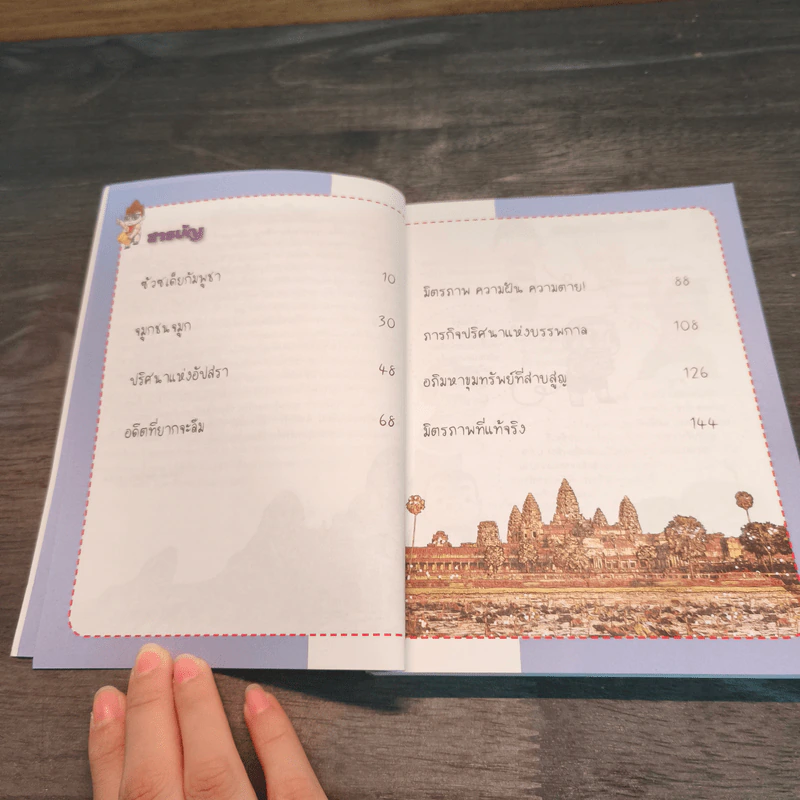 สารบัญ
ซัวซเดียกัมพูชา 10
จมูกชนจมูก 30
ปริศนาแห่งอัปสรา 48
อดีตที่ยากจะลืม 68
มิตรภาพ ความฝัน ความตาย! 88
ภารกิจปริศนาแห่งบรรพกาล 108
อภิมหาขุมทรัพย์ที่สาบสูญ 126
มิตรภาพที่แท้จริง 144